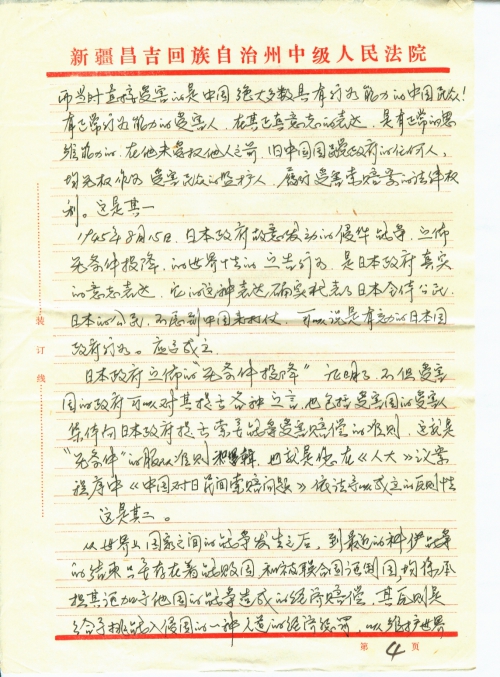 新疆昌吉回族自治州中级人民法院
而当时直接受害的是中国绝大多数具有行为能力的中国民众!
有正常行为能力的受害人,在其真意志的表达,是有正常的思
维能力的,在他未授权他人之前,旧中国国民政府的任何人,
均无权作为受害民众的监护人,履行受害索赔案的法律权
利。这是其一
1945年8月15日,日本政府故意发动的侵华战争,宣佈
无条件投降,的世界性的宣告行为,是日本政府真实
的意志表达,它的这种表达确实代表了日本全体公民,
日本的公民,不愿到中国来打仗,可以说是有效的日本国
政府行为。应予成立.
日本政府宣佈的"无条件投降"证明了不但受害
国的政府可以对其提出各种之言,也包括受害国的受害人
集体向日本政府提出索寻战争受害赔偿的准则,这就是
"无条件"的服从准则 也就是您在《人大》议案
程序中《中国对日民间索赔问题》依法予以成立的原则性
这是其二。
从世界上国家之间的战争发生之后,到最近的科伊战争
的结束只要存在着战败国和被联合国证制国,均得承
担其迟加于他国的战争造成的经济赔偿,其原则是
给予挑战入侵国的一种人道的经济惩罚,以维护世界
装订线
第 4 页